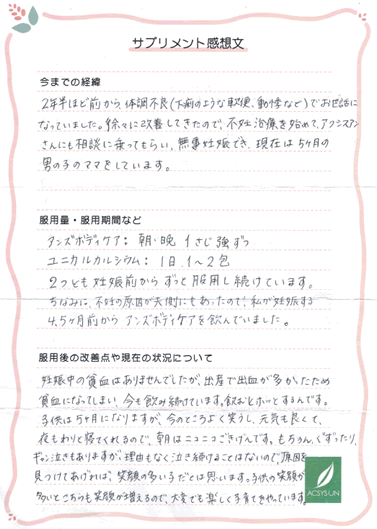 サプリメント感想文
今までの経緯
2年半ほど前から、体調不良(下痢のような軟便、動悸など)でお世話に
なっていました。徐々に改善してきたので、不妊治療を始めて、アクシスアン
さんにも相談に乗ってもらい、無事妊娠でき、現在は5ヶ月の
男の子のママをしています。
服用量・服用期間など
アンズボディケア: 朝・晩 1さじ強ずつ
ユニカルカルシウム: 1日 1~2包
2つとも妊娠前からずっと服用し続けています。
ちなみに、不妊の原因が夫側にもあったので、私が妊娠する
4、5ヶ月前からアンズボディケアを飲んでいました。
服用後の改善点や現在の状況について
妊娠中の貧血はありませんでしたが、出産で出血が多かったため
貧血になってしまい、今も飲み続けています。飲むとホッとするんです。
子供は5ヶ月になりますが、今のところよく笑うし、元気も良くて、
夜もわりと寝てくれるので、朝はニコニコごきげんです。もちろん、ぐずったり、
ギャン泣きもありますが、理由もなく泣き続けることはないので、原因を
見つけてあげれば、笑顔の多い子だとは思います。子供の笑顔が
多いとこちらも笑顔が増えるので、夫婦とも楽しく子育てをやっています。
ACSYSUN